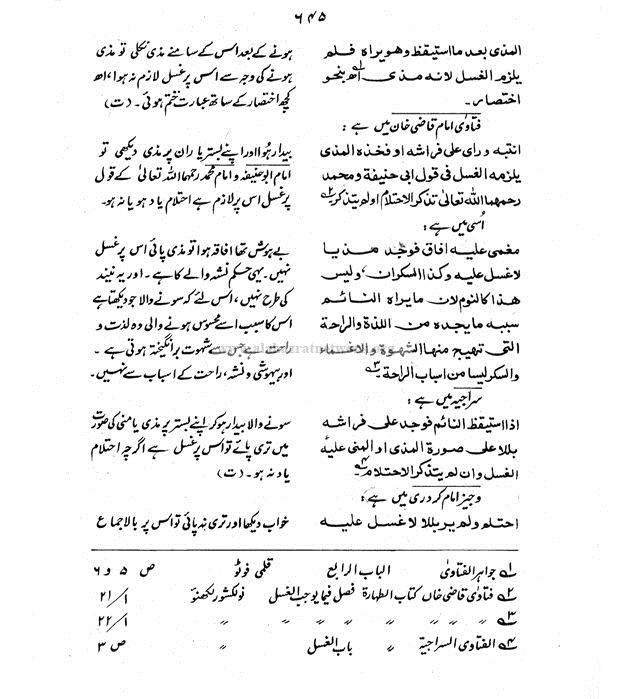 ۶۴۵
المذی بعد ما استیقظ وھو یراہ فلم
یلزمہ الغسل لانہ مذی اھ بنحو
اختصار۔
ہونے کے بعد اس کے سامنے مذی نکلی تو مذی
ہونے کی وجہ سے اس پر غسل لازم نہ ہوا، اھ
کچھ اختصار کے ساتھ عبارت ختم ہوئی۔ (ت)
فتاوٰی امام قاضی خان میں ہے :
انتبہ و رای علی فراشہ او فخذہ المذی
یلزمہ الغسل فی قول ابی حنیفۃ و محمد
رحمھما اللہ تعالٰی تذکر الاحتلام او لم یتذکر ۲؎
بیدار ہُوا اور اپنے بستر یا ران پر مذی دیکھی تو
امام ابوحنیفہ و امام محمد رحمہما اللہ تعالٰی کے قول
پر غسل اس پر لازم ہے احتلام یاد ہو یا نہ ہو۔
اُسی میں ہے :
مغمی علیہ افاق فوجد مذیا
لا غسل علیہ وکذا السکران، ولیس
ھذا کالنوم لان ما یراہ النائم
سببہ ما یجدہ من اللذۃ والراحۃ
التی تھیج منھا الشھوۃ والاغماء
والسکر لیسا من اسباب الراحۃ ۳؎
بے ہوش تھا افاقہ ہوا تو مذی پائی اس پر غسل
نہیں۔ یہی حکم نشہ والے کا ہے۔ اور یہ نیند
کی طرح نہیں، اس لئے کہ سونے والا جو دیکھتا ہے
اس کا سبب اسے محسوس ہونے والی وہ لذت و
راحت ہے جس سے شہوت برانگیختہ ہوتی ہے۔
اور بیہوشی و نشہ، راحت کے اسباب سے نہیں۔
سراجیہ میں ہے :
اذا استیقظ النائم فوجد علی فراشہ
بللا علی صورۃ المذی او المنی علیہ
الغسل وان لم یتذکر الاحتلام ۴؎
سونے والا بیدار ہو کر اپنے بستر پر مذی یا منی کی صورت
میں تری پائے تو اس پر غسل ہے اگرچہ احتلام
یاد نہ ہو۔ (ت)
وجیز امام کردری میں ہے :
احتلم ولم یر بللا لا غسل علیہ
خواب دیکھا اور تری نہ پائی تو اس پر بالاجماع
۱؎ جواہر الفتاوٰی الباب الرابع قلمی فوٹو ص ۵ و ۶
۲؎ فتاوٰی قاضی خاں کتاب الطہارۃ فصل فیما یوجب الغسل نولکشور لکھنؤ ۱/۲۱
۳؎ " " " " " " " " ۱/۲۲
۴؎ الفتاوی السراجیۃ " باب الغسل " ص ۳